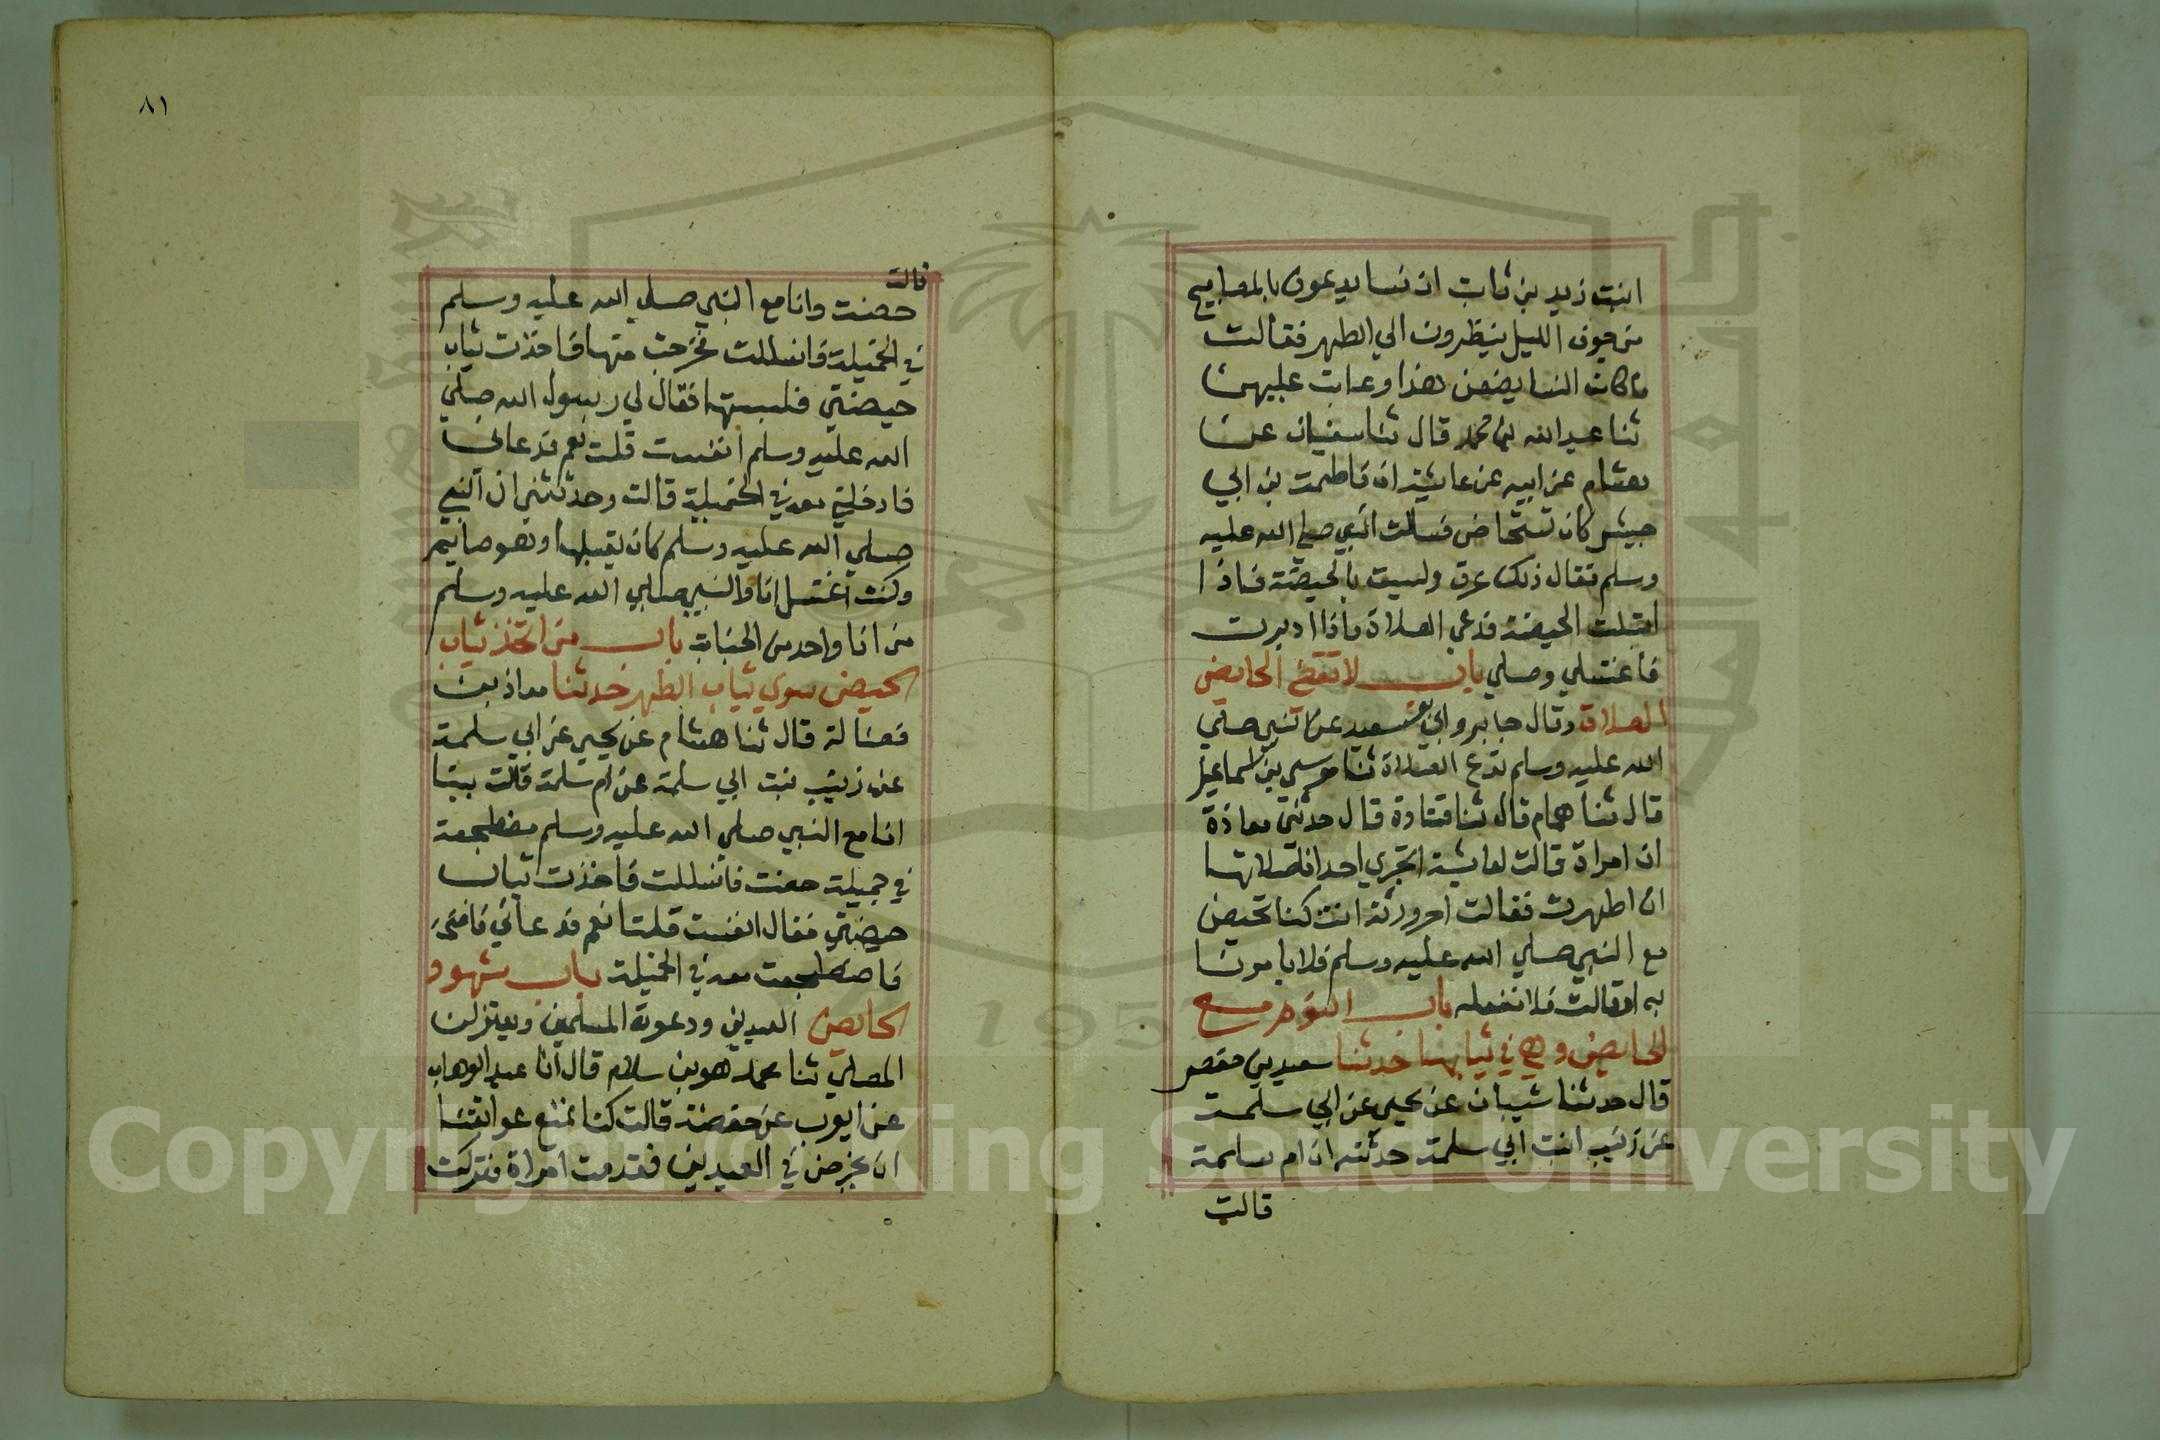 ابنت زيد بن ثابت ان نسا يدعون بالمصابيح
من جوف الليل ينظرون الي الطهر فقالت
ما كانت النسا يصنعن هذا وعابت عليهن
ثنا عبد الله بن محمد قال ثنا سفيان عن
هشام عن ابيه عن عايشة ان فاطمة بن ابي
حبيش كان تستحاض فسالت النبي صلي الله عليه
وسلم فقال ذلك عرق وليست بالحيضة فاذا
اقبلت الحيضة فدعي الصلاة واذا ادبرت
فاغتسلي وصلي باب لا تقضي الحايض
الصلاة وقال جابر وابو سعيد عن النبي صلي
الله عليه وسلم تدع الصلاة ثنا موسي بن اسماعيل
قال ثنا همام قال ثنا قتادة قال حدثتني معاذة
ان امراة قالت لعايشة اتجزي احدانا صلاتها
اذا طهرت فقالت احرورية انت كنا نحيض
مع النبي صلي الله عليه وسلم فلا يامرنا
به او قالت فلا نفعله باب النوم مع
الحايض وهي في ثيابها حدثنا سعيد بن حفص
قال حدثنا شيبان عن يحيي عن ابي سلمة
عن زينب ابنت ابي سلمة حدثته ان ام سلمة
قالت
٨١
قالت
حضت وانا مع النبي صلي الله عليه وسلم
في الخميلة فانسللت فخرجت منها فاخذت ثياب
حيضتي فلبستها فقال لي رسول الله صلي
الله عليه وسلم انفست قلت نعم فدعاني
فادخلني معه في الخميلة قالت وحدثتني ان النبي
صلي الله عليه وسلم كان يقبلها وهو صايم
وكنت اغتسل انا والنبي صلي الله عليه وسلم
من انا واحد من الجنابة باب من اتخذ ثياب
الحيض سوي ثياب الطهر حدثنا معاذ بن
فضالة قال ثنا هشام عن يحيي عن ابي سلمة
عن زينب بنت ابي سلمة عن ام سلمة قالت بينا
انا مع النبي صلي الله عليه وسلم مضطجعة
في خميلة حضت فانسللت فاخذت ثياب
حيضتي فقال انفست قلت نعم فدعاني
فاضطجعت معه في الخميلة باب شهود
الحايض العيدين ودعوة المسلمين ويعتزلن
المصلي ثنا محمد هو بن سلام قال انا عبد الوهاب
عن ايوب عن حفصة قالت كنا نمنع عواتقنا
ان يخرجن في العيدين فقدمت امراة فنزلت
Copyright © King Saud University
195